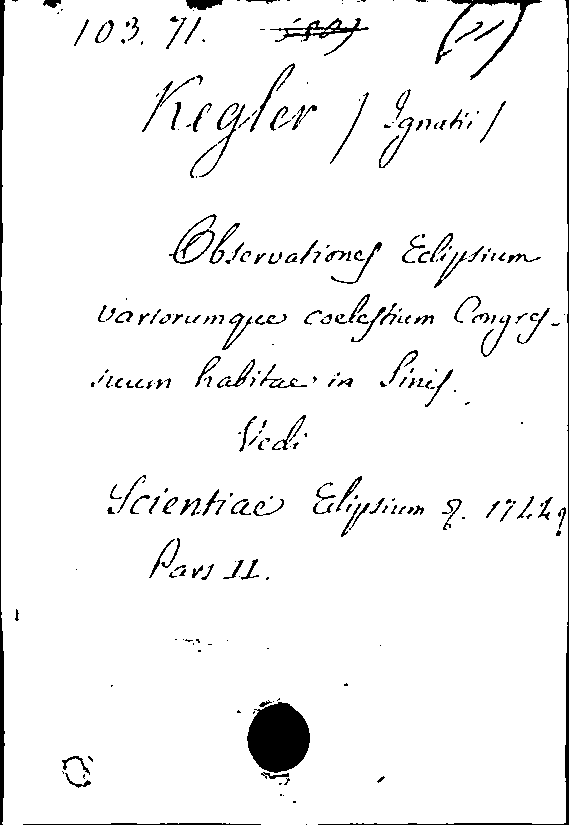 103. 71. (11)
Kegler / Ignatii /
Observationes Eclipsium
variorumque coelestium Congres-
suum habitae in Sinis.
Vedi
Scientiae Eclipsium &. 1744
Pars II.